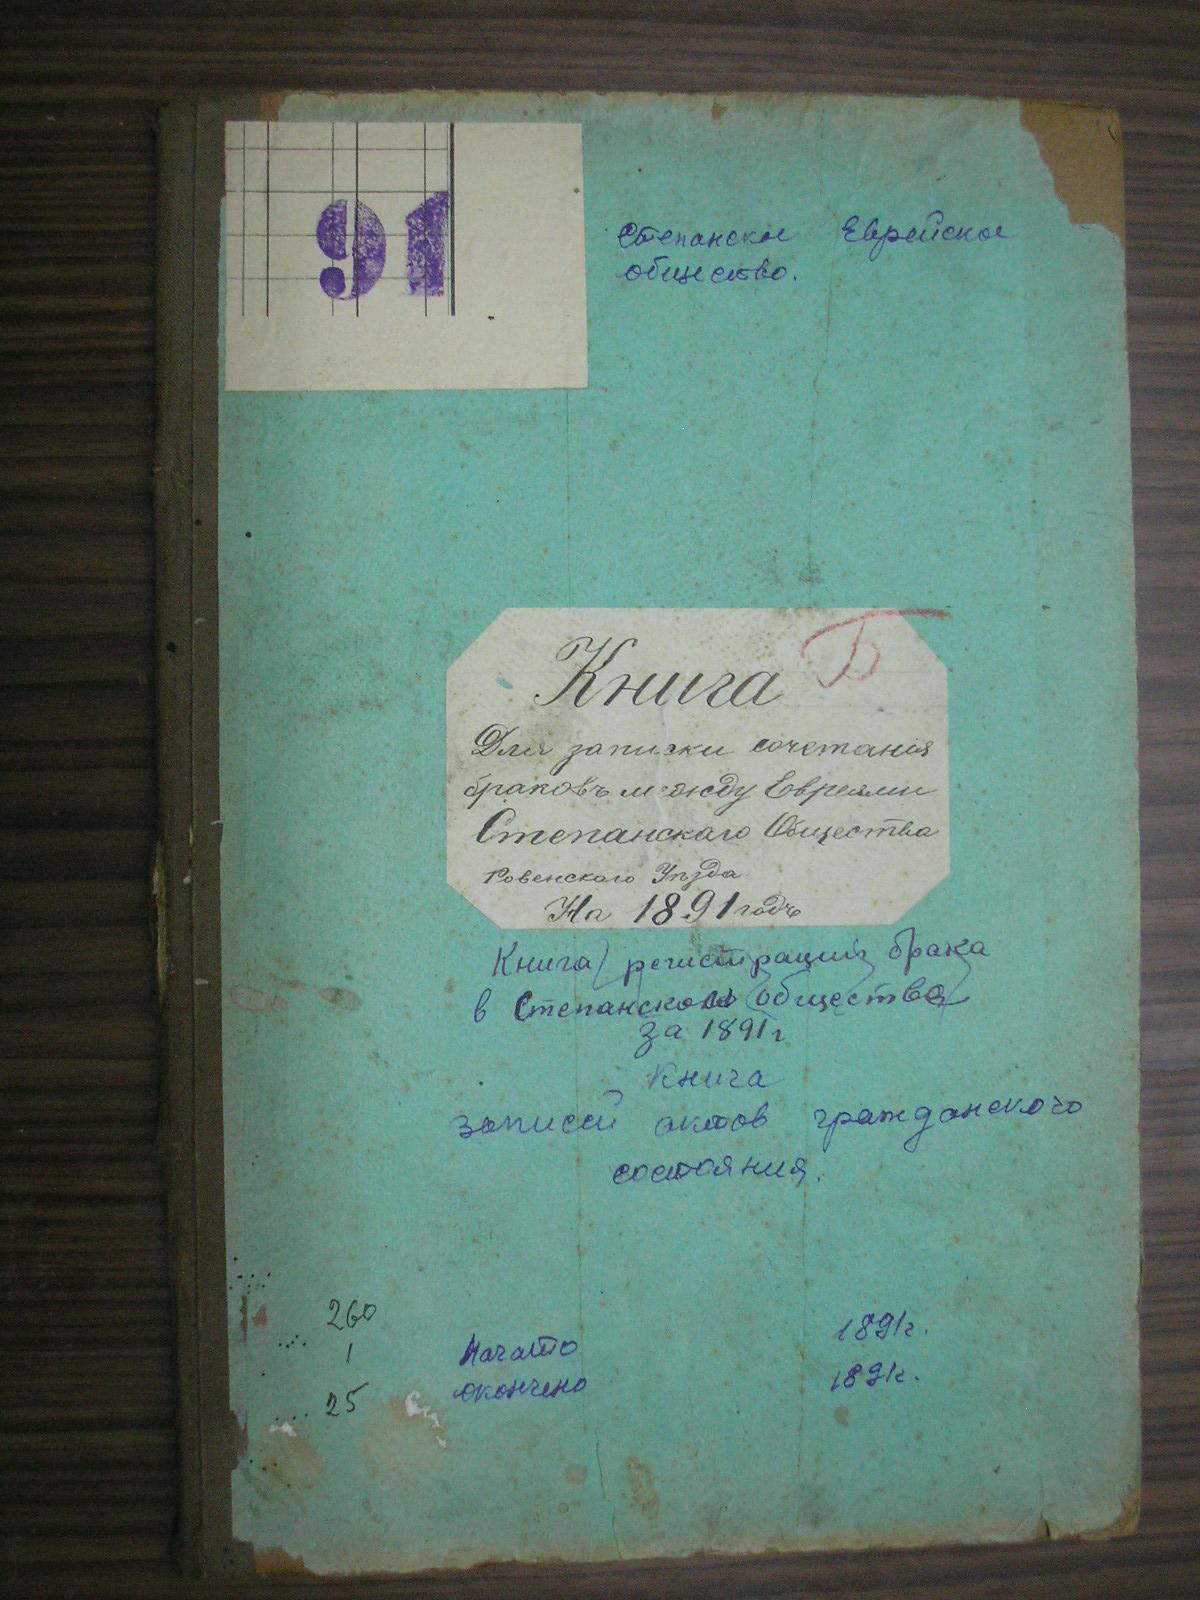 91
Степанское Еврейское
общество.
Книга Б
Для записки сочетания
браковъ между Евреями
Степанскаго Общества
Ровенского Уѣзда
На 1891 годъ
Книга регистраций брака
в Степанском общества
за 1891г
Книга
записей актов гражданского
состояния.
260
1
25
Начато 1891г.
окончено 1891г.